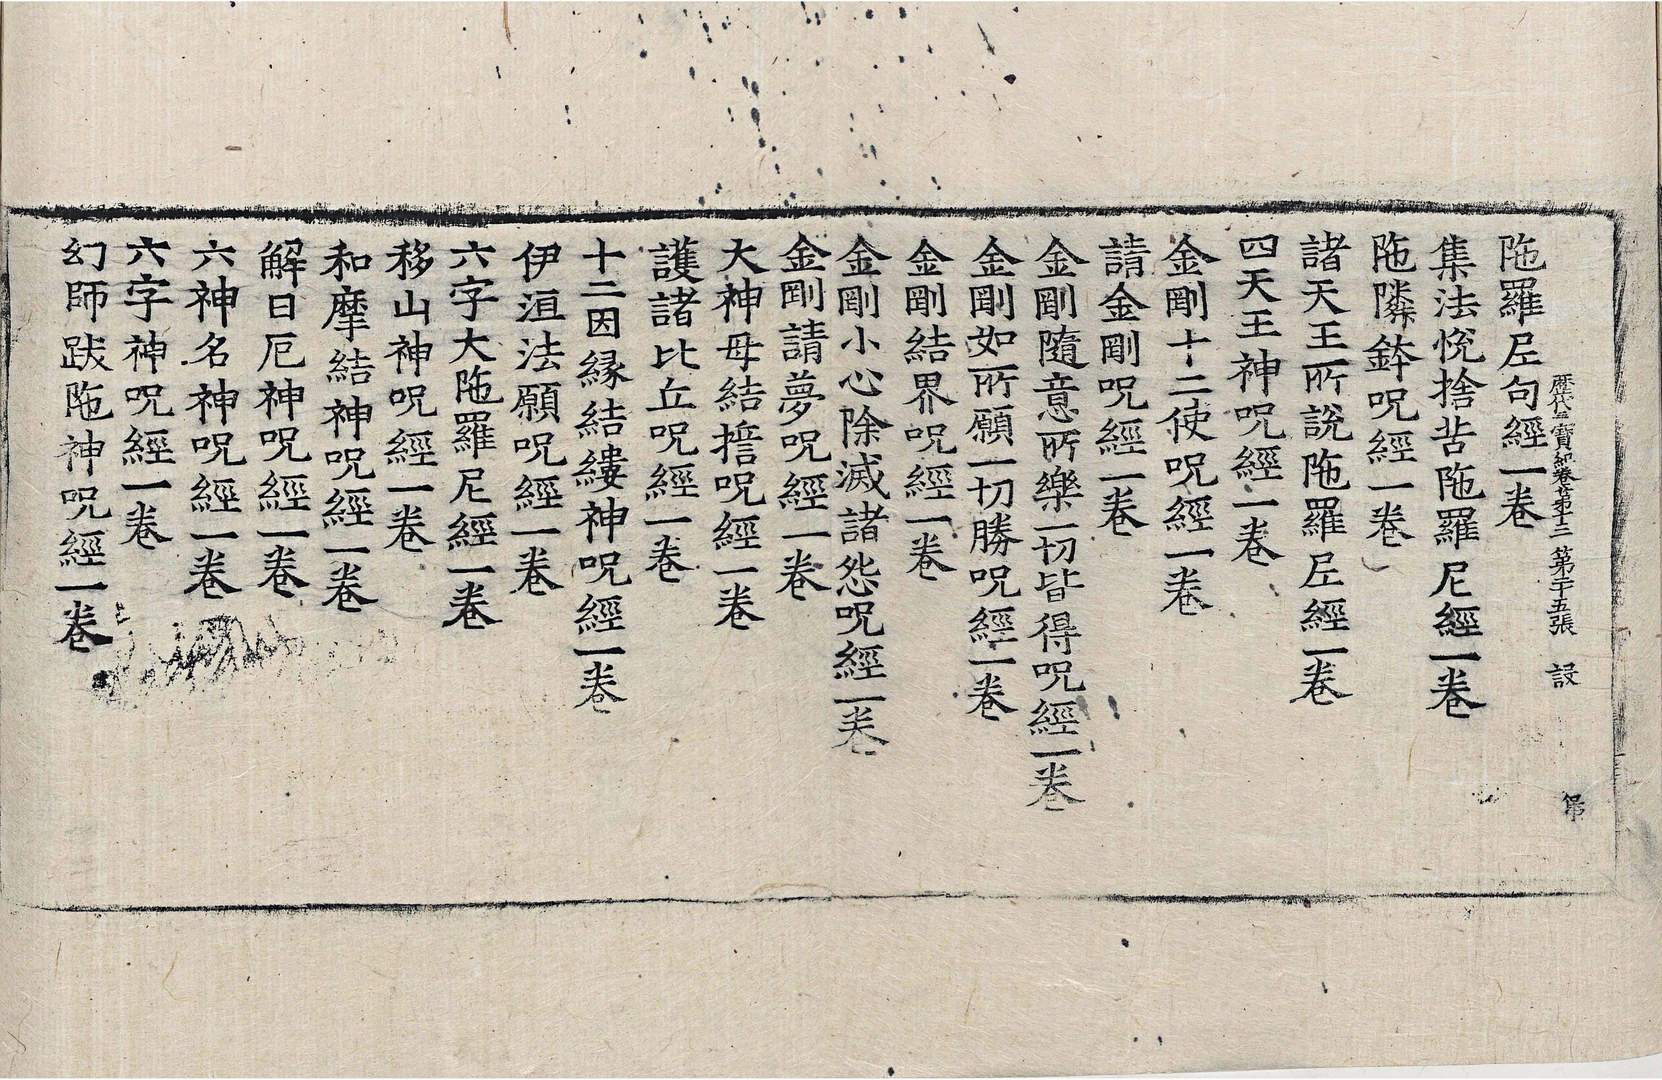 歷代三寶紀卷第十三 第二十五張 設
陁羅尼句經一卷
集法悅捨苦陁羅尼經一卷
陁隣鉢呪經一卷
諸天王所說陁羅尼經一卷
四天王神呪經一卷
金剛十二使呪經一卷
請金剛呪經一卷
金剛隨意所樂一切皆得呪經一卷
金剛如所願一切勝呪經一卷
金剛結界呪經一卷
金剛小心除滅諸怨呪經一卷
金剛請夢呪經一卷
大神母結擔呪經一卷
護諸比丘呪經一卷
十二因緣結縷神呪經一卷
伊洹法願呪經一卷
六字大陁羅尼經一卷
移山神呪經一卷
和摩結神呪經一卷
解日厄神呪經一卷
六神名神呪經一卷
六字神呪經一卷
幻師跋陁神呪經一卷